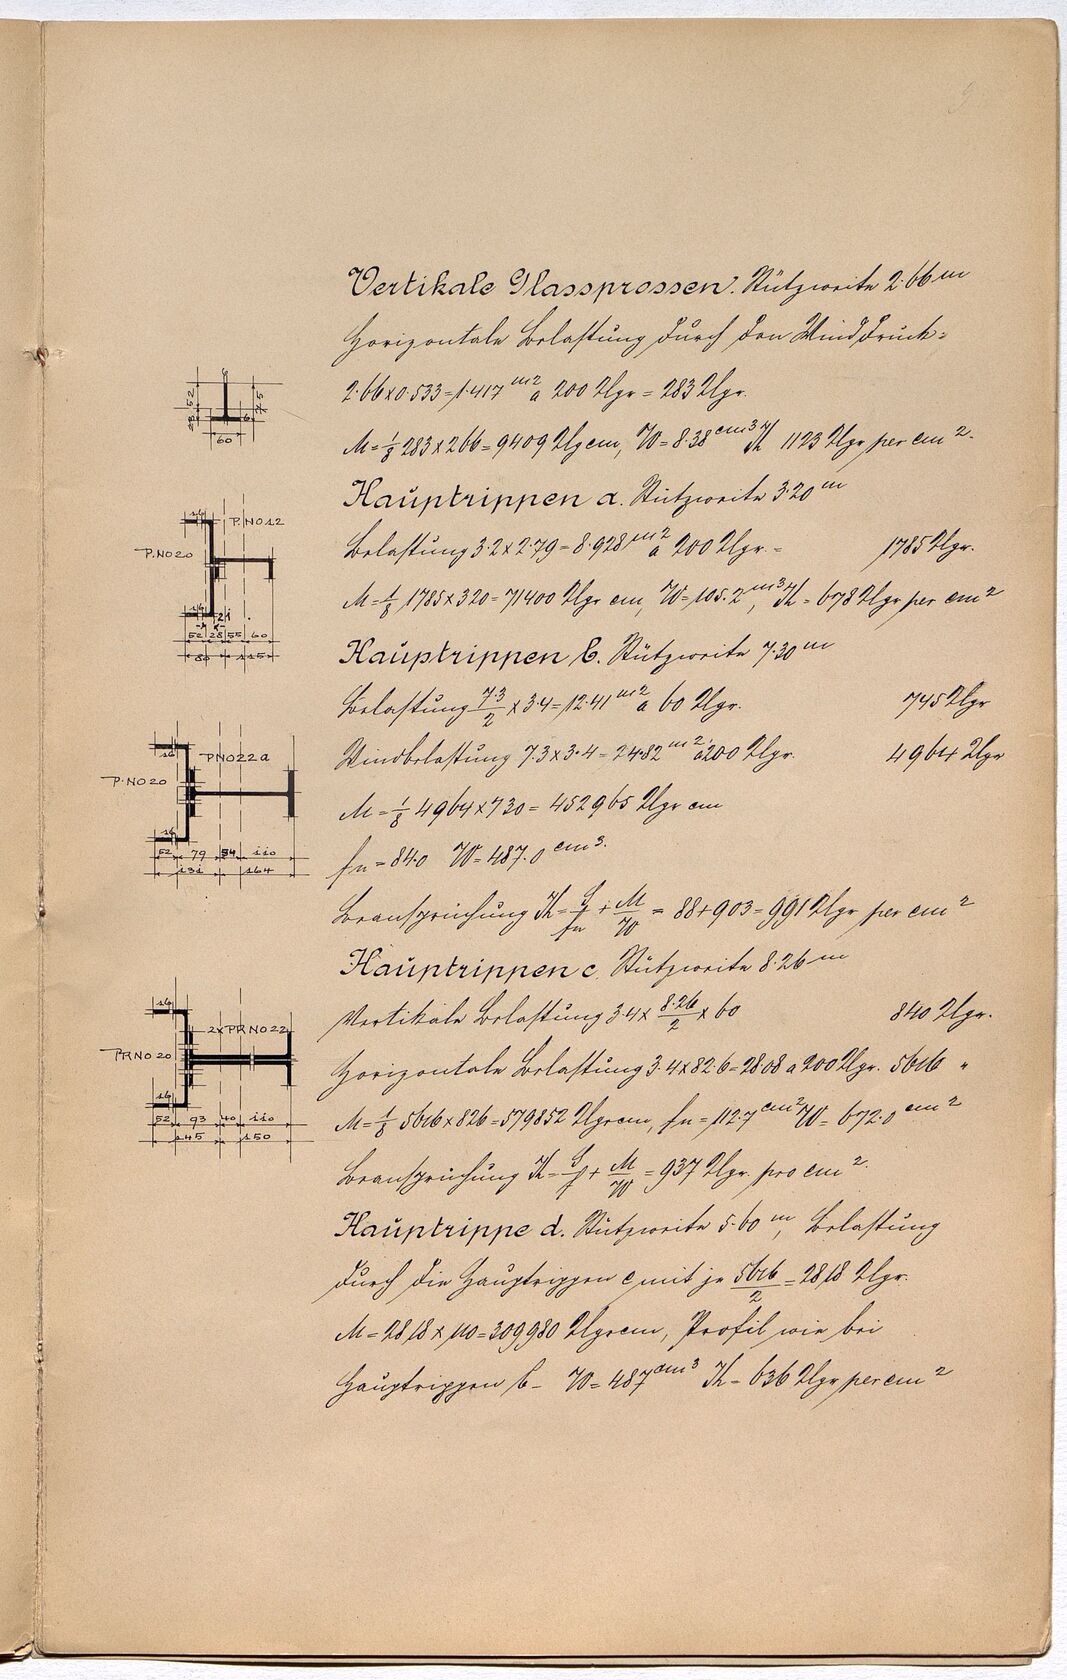 Vertikale Glassprossen. Stützweite 2.66 m
Horizontale Belastung durch den Winddruck =
2.66 x 0.533 = 1.417 m2 a 200 Klgr = 283 Klgr.
M = 1/8 283 x 266 = 9409 Klgcm, W = 8.38 cm3 K 1123 Klgr per cm2.
Hauptrippen a. Stützweite 3.20 m
Belastung 3.2 x 2.79 = 8.928 m2 a 200 Klgr. = 1785 Klgr.
M = 1/8 1785 x 320 = 71400 Klgr cm, W = 105.2 m3, K = 678 Klgr per cm2
Hauptrippen b. Stützweite 7.30 m
Belastung 7.3/2 x 3.4 = 12.41 m2 a 60 Klgr. 745 Klgr
Windbelastung 7.3 x 3.4 = 24.82 m2 a 200 Klgr. 4964 Klgr
M = 1/8 4964 x 730 = 452965 Klgr cm
fn = 84.0 W = 487.0 cm3.
Beanspruchung K = G/fn + M/W = 88 + 903 = 991 Klgr per cm2
Hauptrippen c. Stützweite 8.26 m
Vertikale Belastung 3.4 x 8.26/2 x 60 840 Klgr.
Horizontale Belastung 3.4 x 82.6 = 28.08 a 200 Klgr. 5616 "
M = 1/8 5616 x 826 = 579852 Klgrcm, fn = 112.7 cm2 W = 672.0 cm2
Beanspruchung K = G/f + M/W = 937 Klgr. pro cm2.
Hauptrippe d. Stützweite 5.60 m, Belastung
durch die Hauptrippen c mit je 5616/2 = 2818 Klgr.
M = 2818 x 110 = 309980 Klgrcm, Profil wie bei
Hauptrippen b – W = 487 cm3 K = 636 Klgr per cm2
6
60
16
P.NO12
P.NO20
16
52 28 55 60
80 115
16
PNO22a
P.NO20
16
52 79 54 110
131 164
16
2xPRNO22
PRNO20
16
52 93 40 110
145 150